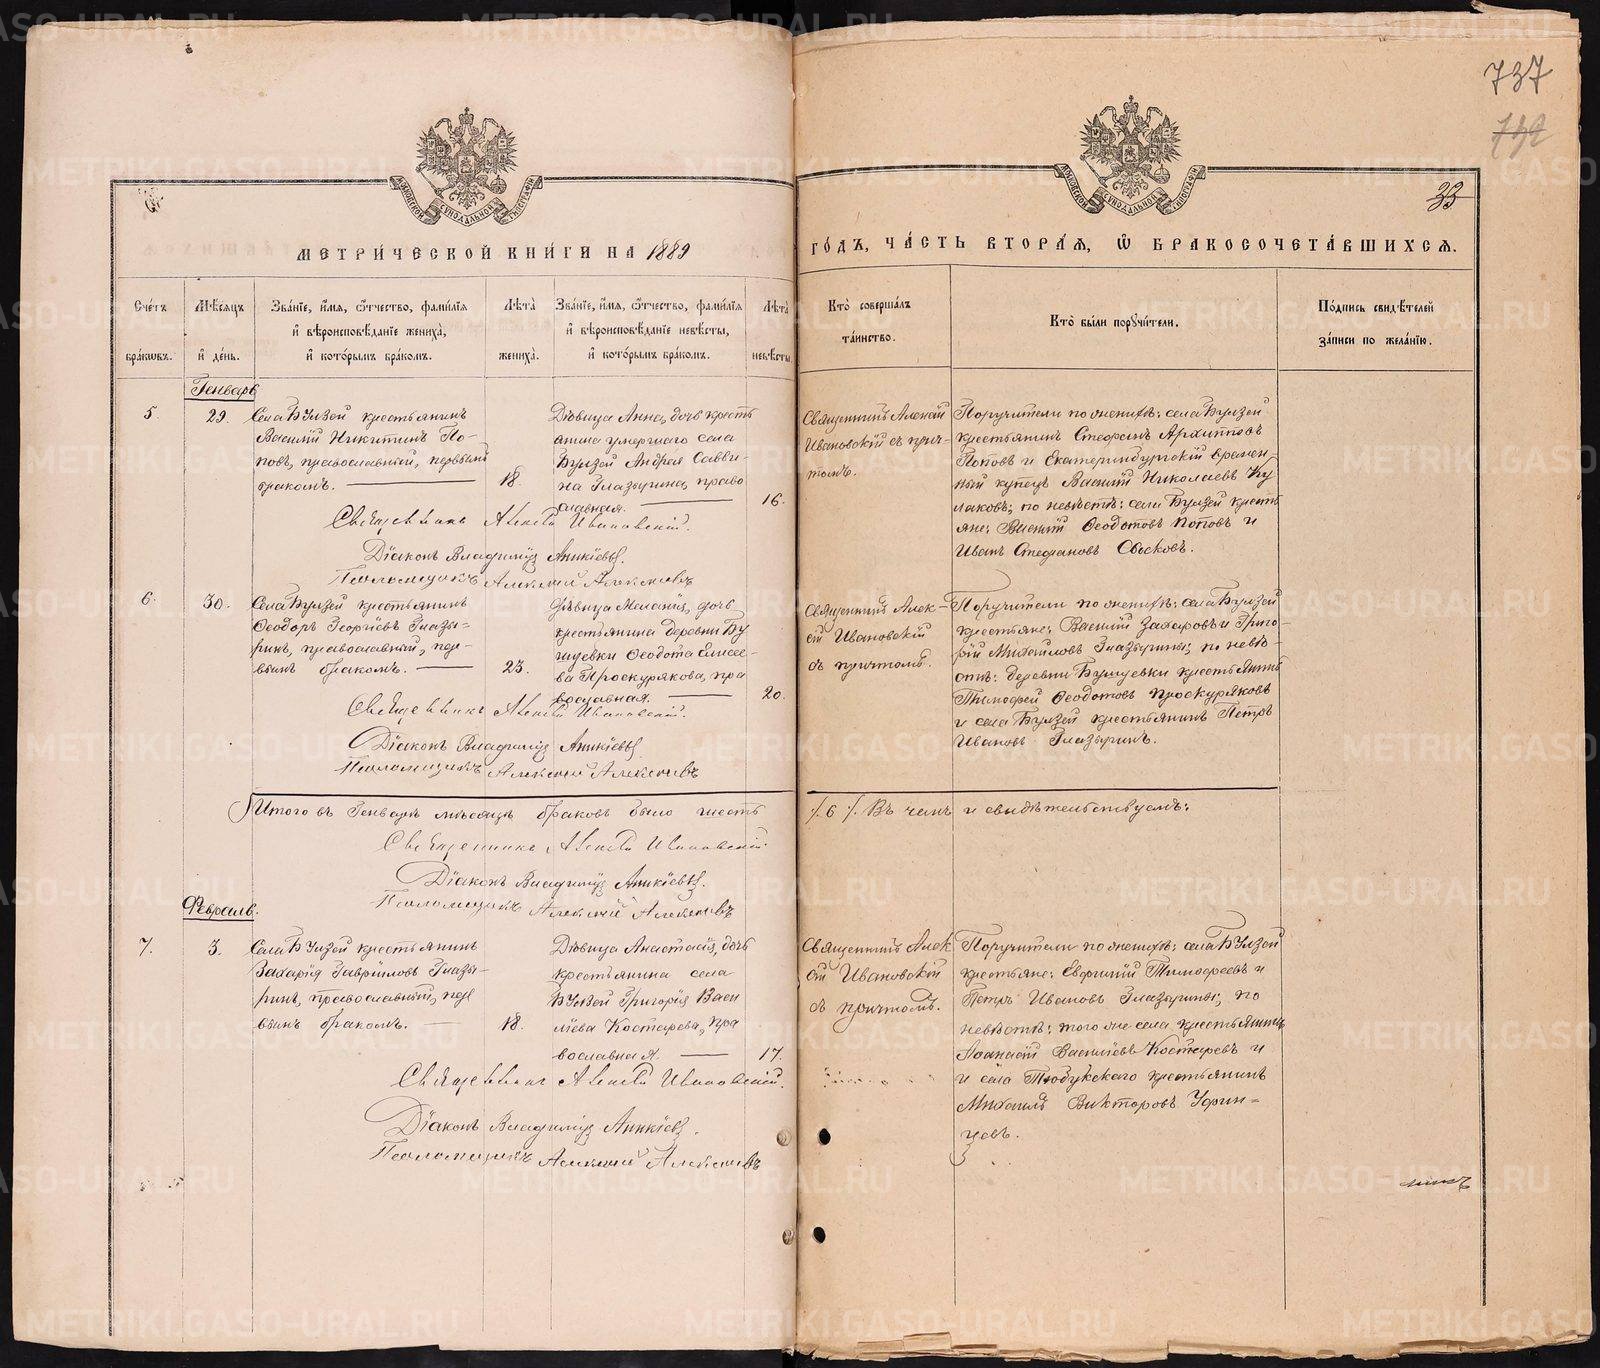 737
792
33
МЕТРИ́ЧЕСКОЙ КНИ́ГИ НА 1889
ГО́ДЪ, ЧА́СТЬ ВТОРА́Я, Ѡ БРАКОСОЧЕТА́ВШИХСЯ.
Сче́тъ бра́ковъ.
Мѣ́сяцъ и де́нь.
Зва́нїе, и́мя, ѻ҆́тчество, фами́лїя
и҆ вѣроисповѣ́данїе жениха̀,
и҆ кото́рымъ бра́комъ.
Лѣ́та жениха̀.
Зва́нїе, и́мя, ѻ҆́тчество, фами́лїя
и҆ вѣроисповѣ́данїе невѣ́сты,
и҆ кото́рымъ бра́комъ.
Лѣ́та невѣ́сты
Кто̀ соверша́лъ
та́инство.
Кто̀ бы́ли порꙋчи́тели.
По́дпись свидѣ́телей
за́писи по жела́нїю.
Генварь
5.
29.
Села Булзей крестьянинъ
Василій Никитинъ По-
повъ, православный, первымъ
бракомъ.
18.
Дѣвица Анна, дочь кресть
янина умершаго села
Булзей Андрея Савви-
на Глазырина, право
славная.
16.
Священникъ Алексій
Ивановскій съ прич-
томъ.
Поручители по женихѣ: села Булзей
крестьянинъ Стефанъ Архипповъ
Поповъ и Екатеринбургскій времен-
ный купецъ Василій Николаевъ Ку
лаковъ; по невѣстѣ: села Булзей кресть
яне: Василій Ѳеодотовъ Поповъ и
Иванъ Стефановъ Съсковъ.
Священникъ Алексій Ивановскій.
Діаконъ Владиміръ Аникіевъ.
Псаломщикъ Алексій Алексѣевъ
6.
30.
Села Булзей крестьянинъ
Ѳеодоръ Георгіевъ Глазы-
ринъ, православный, пер-
вымъ бракомъ.
23.
Дѣвица Меланія, дочь
крестьянина деревни Бу
шуевки Ѳеодота Елисее-
ва Проскурякова, пра
вославная.
20.
Священникъ Алек-
сій Ивановскій
съ причтомъ.
Поручители по женихѣ: села Булзей
крестьяне: Василій Захаровъ и Григо-
рій Михайловъ Глазырины; по невѣ-
стѣ: деревни Бушуевки крестьянинъ
Тимофей Ѳеодотовъ Проскуряковъ
и села Булзей крестьянинъ Петръ
Ивановъ Глазыринъ.
Священникъ Алексій Ивановскій.
Діаконъ Владиміръ Аникіевъ.
Псаломщикъ Алексій Алексѣевъ
Итого въ Генварѣ мѣсяцѣ браковъ было шесть /.6./ Въ чемъ и свидѣтельствуемъ:
Священникъ Алексій Ивановскій.
Діаконъ Владиміръ Аникіевъ.
Псаломщикъ Алексій Алексѣевъ
Февраль.
7.
3.
Села Булзей крестьянинъ
Захарія Гавріиловъ Глазы-
ринъ, православный, пер
вымъ бракомъ.
18.
Дѣвица Анастасія, дочь
крестьянина села
Булзей Григорія Васи
лиева Костарева, пра
вославная.
17.
Священникъ Алек
сій Ивановскій
съ причтомъ.
Поручители по женихѣ: села Булзей
крестьяне: Евфимій Тимофеевъ и
Петръ Ивановъ Глазырины; по
невѣстѣ: того же села крестьянинъ
Аѳанасій Василіевъ Костаревъ и
и села Тюбукскаго крестьянинъ
Михаилъ Викторовъ Уфин-
цевъ.
Священникъ Алексій Ивановскій.
Діаконъ Владиміръ Аникіевъ.
Псаломщикъ Алексій Алексѣевъ